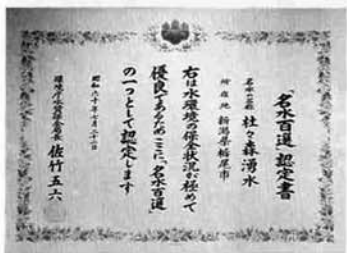 「名水百選」認定書
名水の名称 杜々森湧水
所在地 新潟県栃尾市
右は水環境の保全状況が極めて
優良であるためここに、「名水百選」
の一つとして認定します
昭和六十年七月二十二日
環境庁水質保全局長 佐竹五六